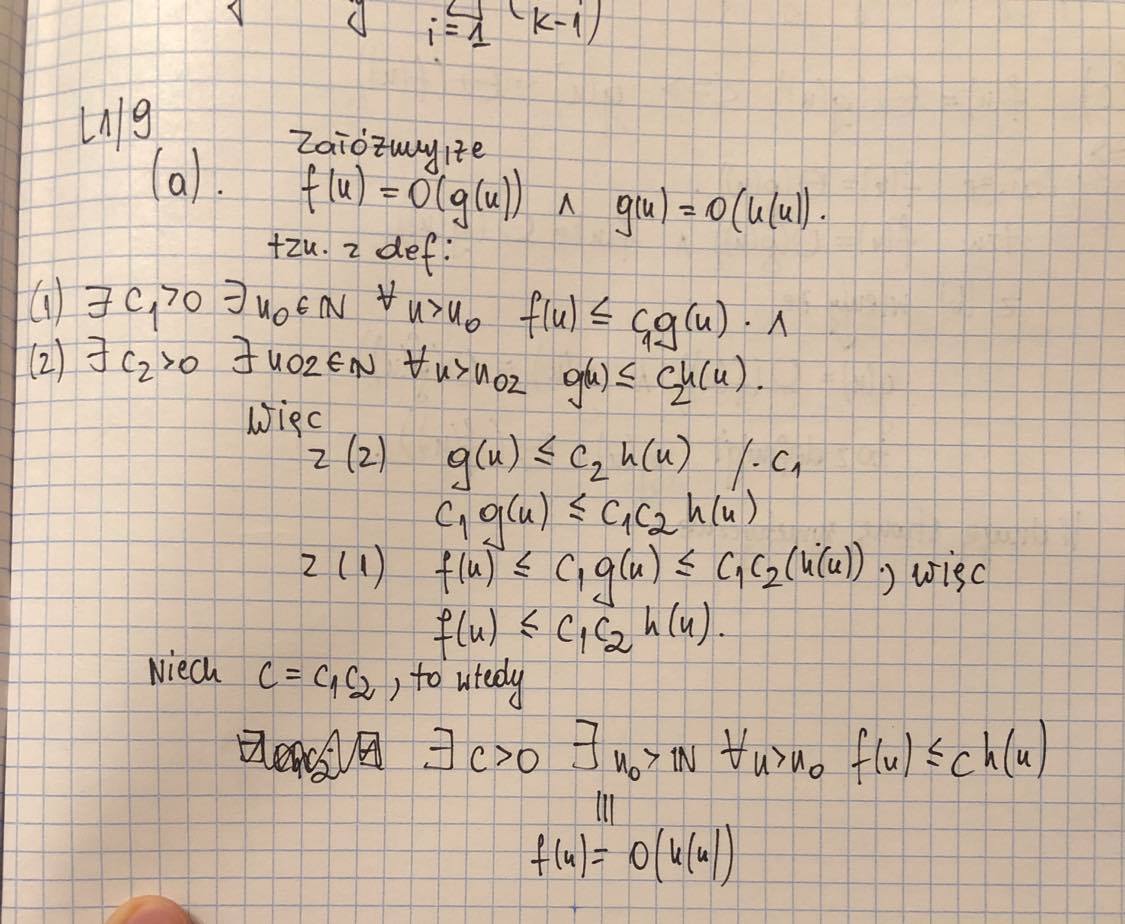 i=1 (k-1)
L1/9
Założmy, że
(a). f(n) = O(g(n)) ∧ g(n) = O(h(n)).
tzn. z def:
(1) ∃ c₁>0 ∃ n₀∈ℕ ∀ n>n₀ f(n) ≤ c₁g(n) . ∧
(2) ∃ c₂>0 ∃ n02∈ℕ ∀n>n₀₂ g(n) ≤ c₂h(n).
więc
z (2) g(n) ≤ c₂ h(n) /· c₁
c₁ g(n) ≤ c₁c₂ h(n)
z (1) f(n) ≤ c₁g(n) ≤ c₁c₂(h(n)), więc
f(n) ≤ c₁c₂ h(n).
Niech c = c₁c₂, to wtedy
∃ c>0 ∃ n₀>ℕ ∀n>n₀ f(n) ≤ c h(n)
|||
f(n) = O(h(n))